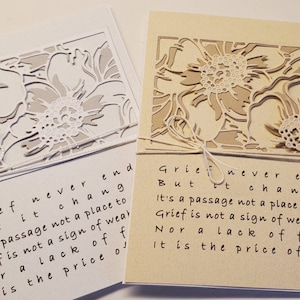 ef never end
t it chang
passage not a place to
f is not a sign of wea
or a lack of f
is the price of
Grief never e
But it chan
It's a passage not a place
Grief is not a sign of we
Nor a lack of
It is the price o